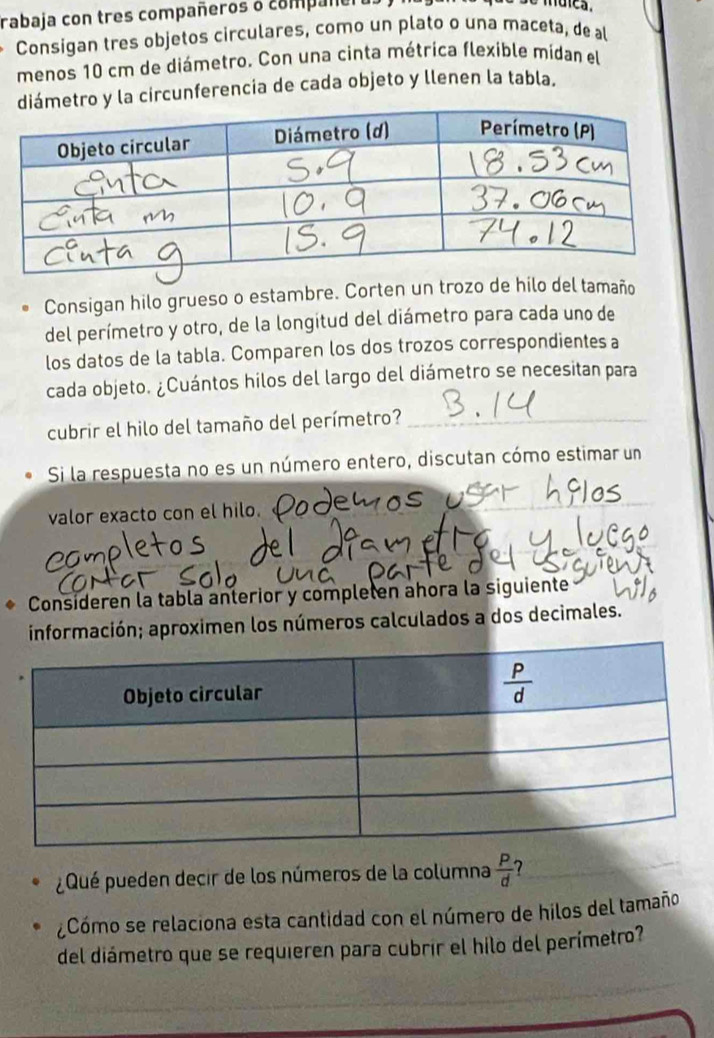 rabaja con tres compañeros o
Consigan tres objetos circulares, como un plato o una maceta, de al
menos 10 cm de diámetro. Con una cinta métrica flexible midan el
diámetro y la circunferencia de cada objeto y llenen la tabla.
Objeto circular Diámetro (d) Perímetro (P)
cinta 5.9 18.53 cm
cinta m 10.9 37.06 cm
cinta g 15.9 74.12
• Consigan hilo grueso o estambre. Corten un trozo de hilo del tamaño
del perímetro y otro, de la longitud del diámetro para cada uno de
los datos de la tabla. Comparen los dos trozos correspondientes a
cada objeto. ¿Cuántos hilos del largo del diámetro se necesitan para
cubrir el hilo del tamaño del perímetro? 3.14
• Si la respuesta no es un número entero, discutan cómo estimar un
valor exacto con el hilo. Podemos usar hilos
completos del diametro y luego
contar solo una parte del siguiente
hilo
• Consideren la tabla anterior y completen ahora la siguiente
información; aproximen los números calculados a dos decimales.
Objeto circular P/d
• ¿Qué pueden decir de los números de la columna P/d?
• ¿Cómo se relaciona esta cantidad con el número de hilos del tamaño
del diámetro que se requieren para cubrir el hilo del perímetro?